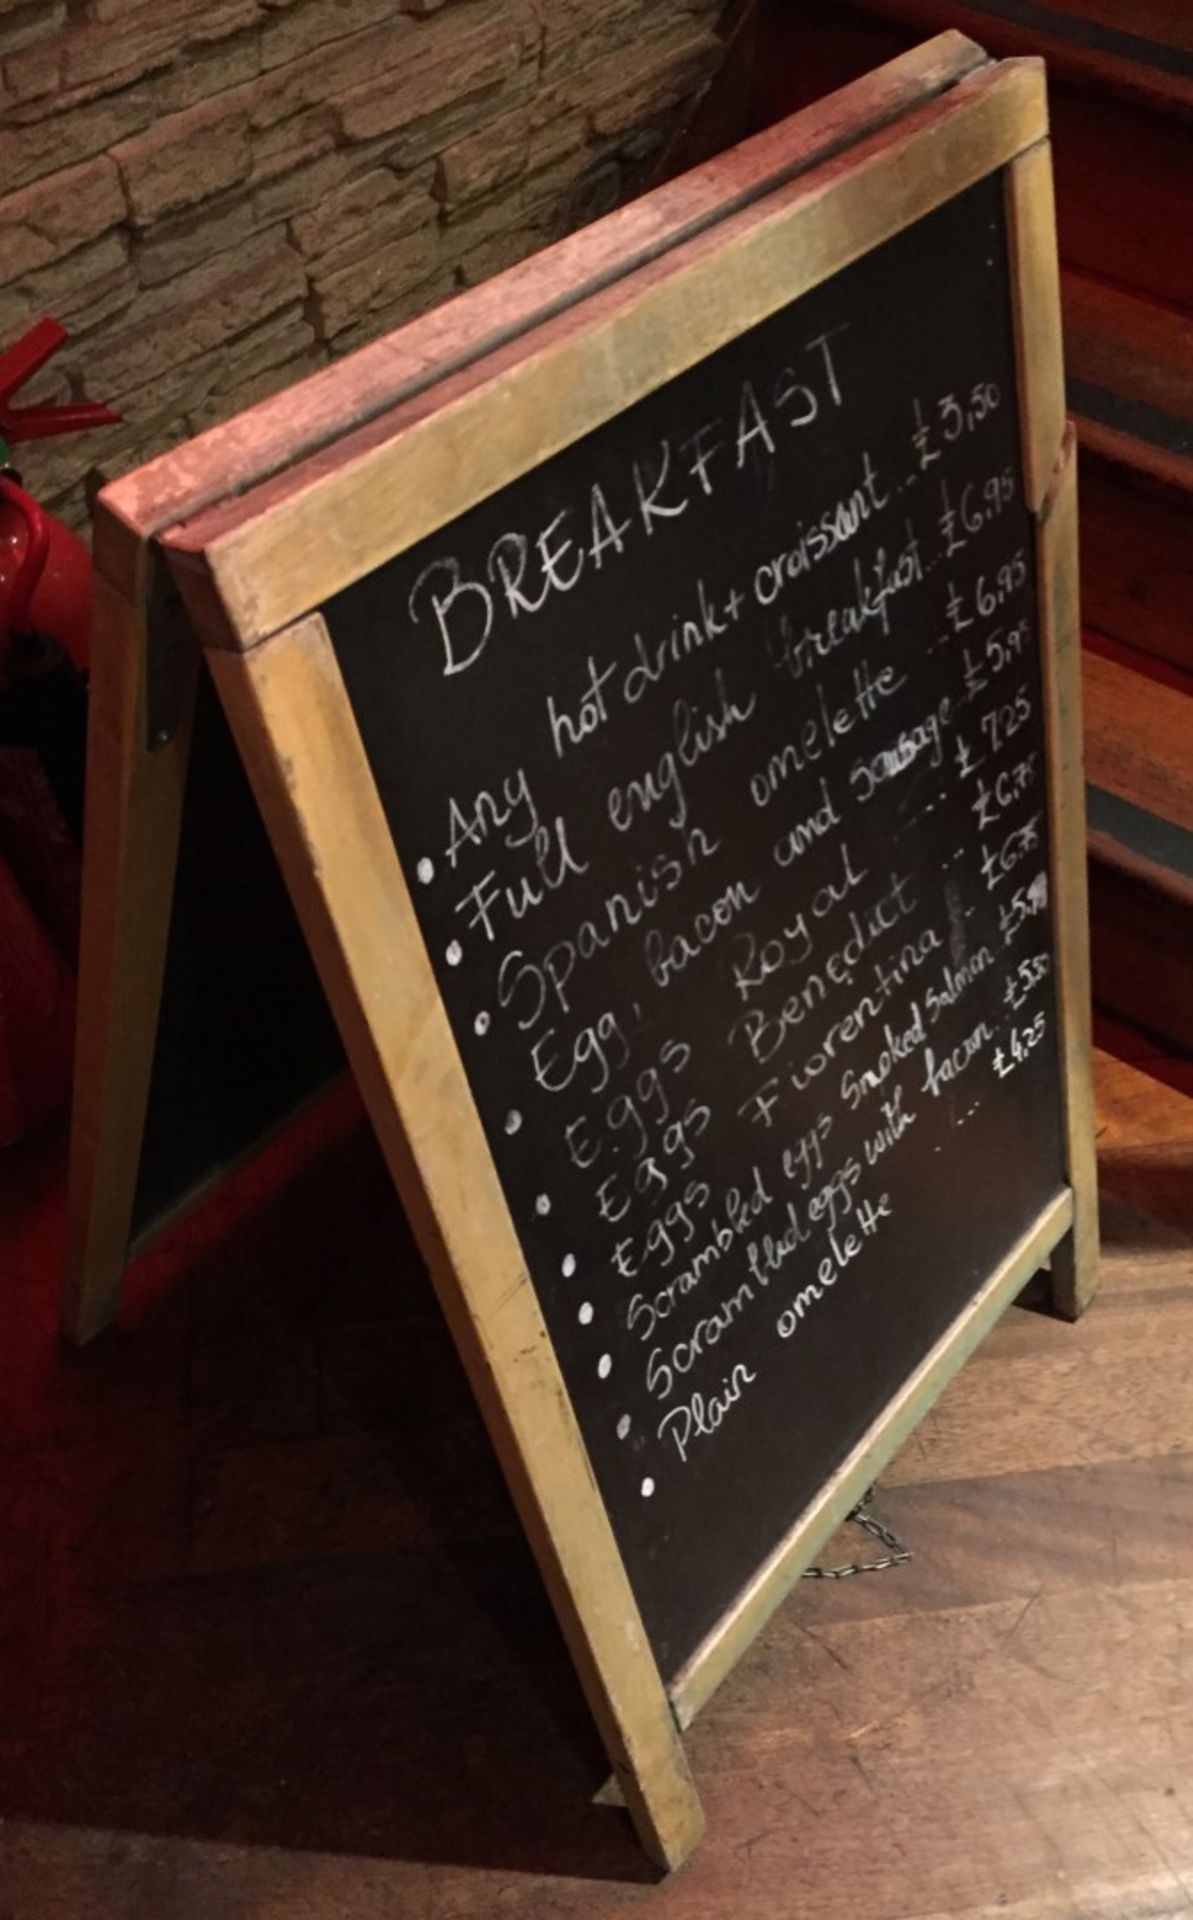 BREAKFAST
• Any hot drink + croissant .. £3,50
• Full english breakfast .. £6,95
• Spanish omelette .. £6,95
• Egg, bacon and sausage .. £5,95
• Eggs Royal ... £ 7.25
• Eggs Benedict ... £6.75
• Eggs Fiorentina .. £6.75
• Scrambled eggs Smoked Salmon £5.99
• Scrambled eggs with bacon .. £5.50
• Plain omelette .... £4.25